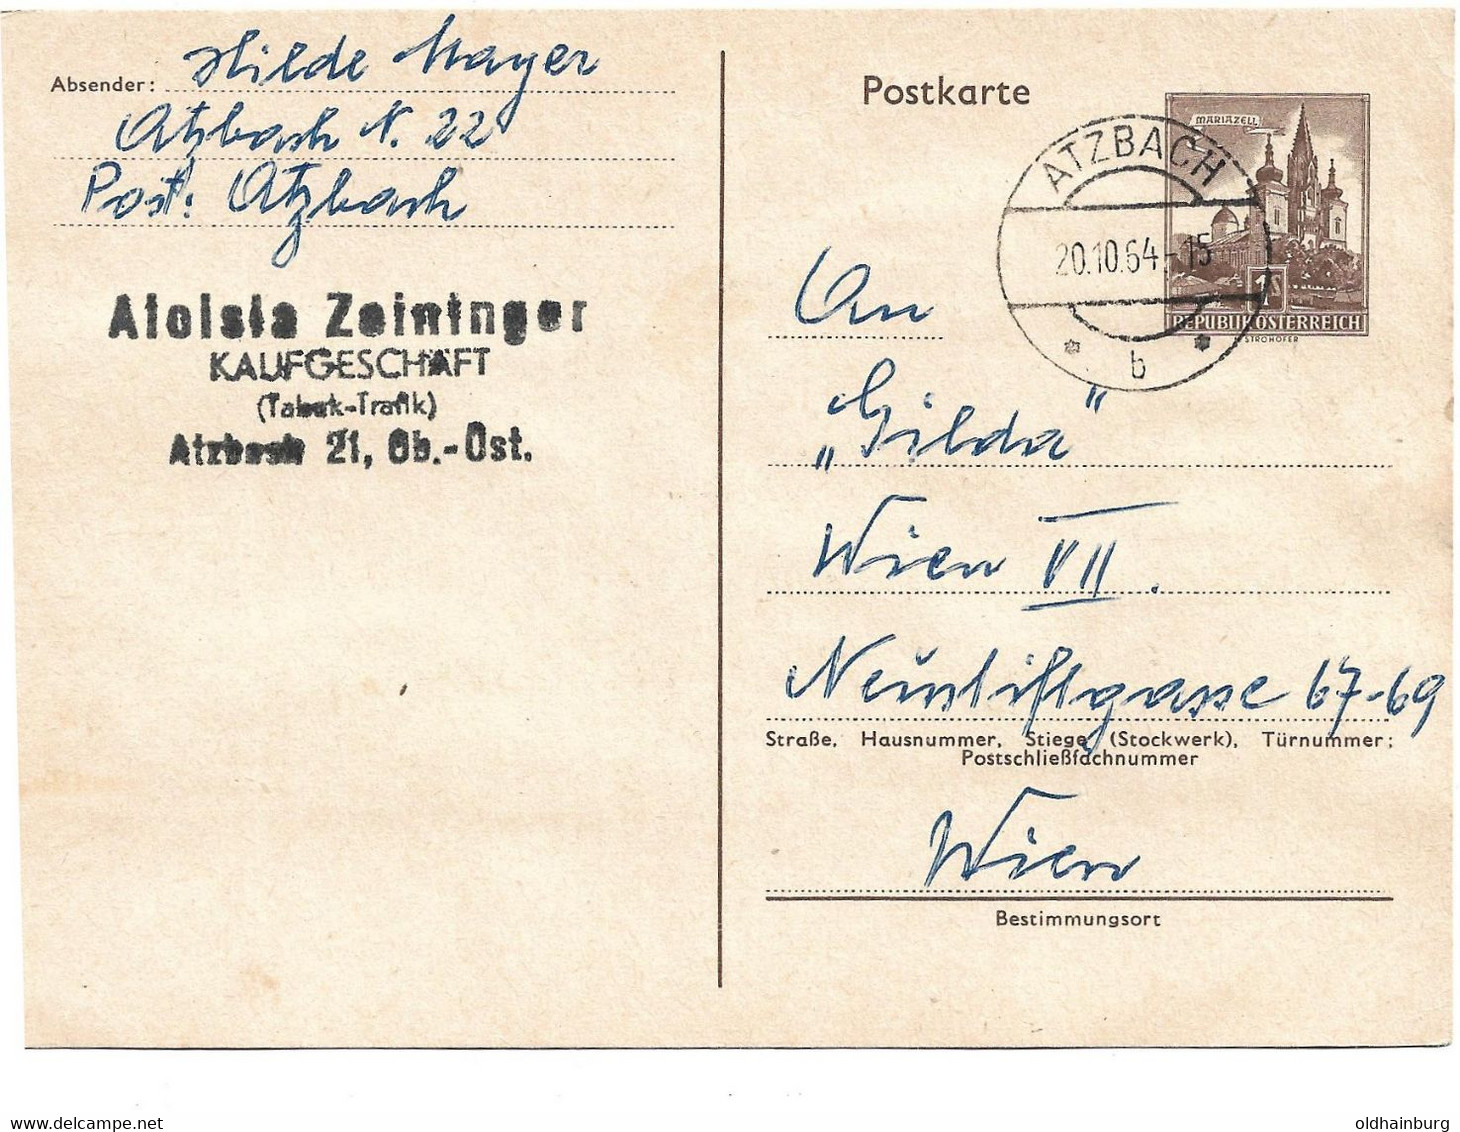 Absender: Hilde Mayer
Atzbach N. 22
Post: Atzbach
Aloisia Zeininger
KAUFGESCHÄFT
(Tabak-Trafik)
Atzbach 21, Ob.-Öst.
Postkarte
MARIAZELL
1S
REPUBLIK ÖSTERREICH
STROHOFER
ATZBACH
20.10.64-15
b
An
„Gilda"
Wien VII.
Neustiftgasse 67-69
Straße, Hausnummer, Stiege, (Stockwerk), Türnummer;
Postschließfachnummer
Wien
Bestimmungsort
oldhainburg